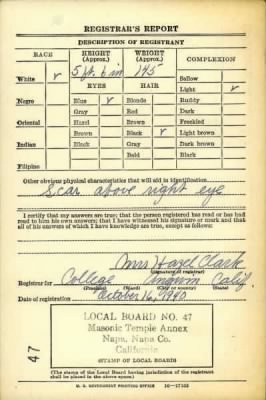 REGISTRAR'S REPORT
DESCRIPTION OF REGISTRANT
RACE HEIGHT (Approx.) WEIGHT (Approx.) COMPLEXION
5 ft. 6 in 145
White ✓ Sallow
EYES HAIR Light ✓
Negro Blue ✓ Blonde Ruddy
Gray Red Dark
Oriental Hazel Brown Freckled
Brown Black ✓ Light brown
Indian Black Gray Dark brown
Bald Black
Filipino
Other obvious physical characteristics that will aid in identification
Scar above right eye
I certify that my answers are true; that the person registered has read or has had
read to him his own answers; that I have witnessed his signature or mark and that
all of his answers of which I have knowledge are true, except as follows:
Mrs Hazel Clark
(Signature of registrar)
Registrar for College Angwin Calif.
(Precinct) (Ward) (City or county) (State)
Date of registration October 16, 1940
LOCAL BOARD NO. 47
Masonic Temple Annex
Napa, Napa Co.
California
(STAMP OF LOCAL BOARD)
47
(The stamp of the Local Board having jurisdiction of the registrant
shall be placed in the above space.)
U. S. GOVERNMENT PRINTING OFFICE